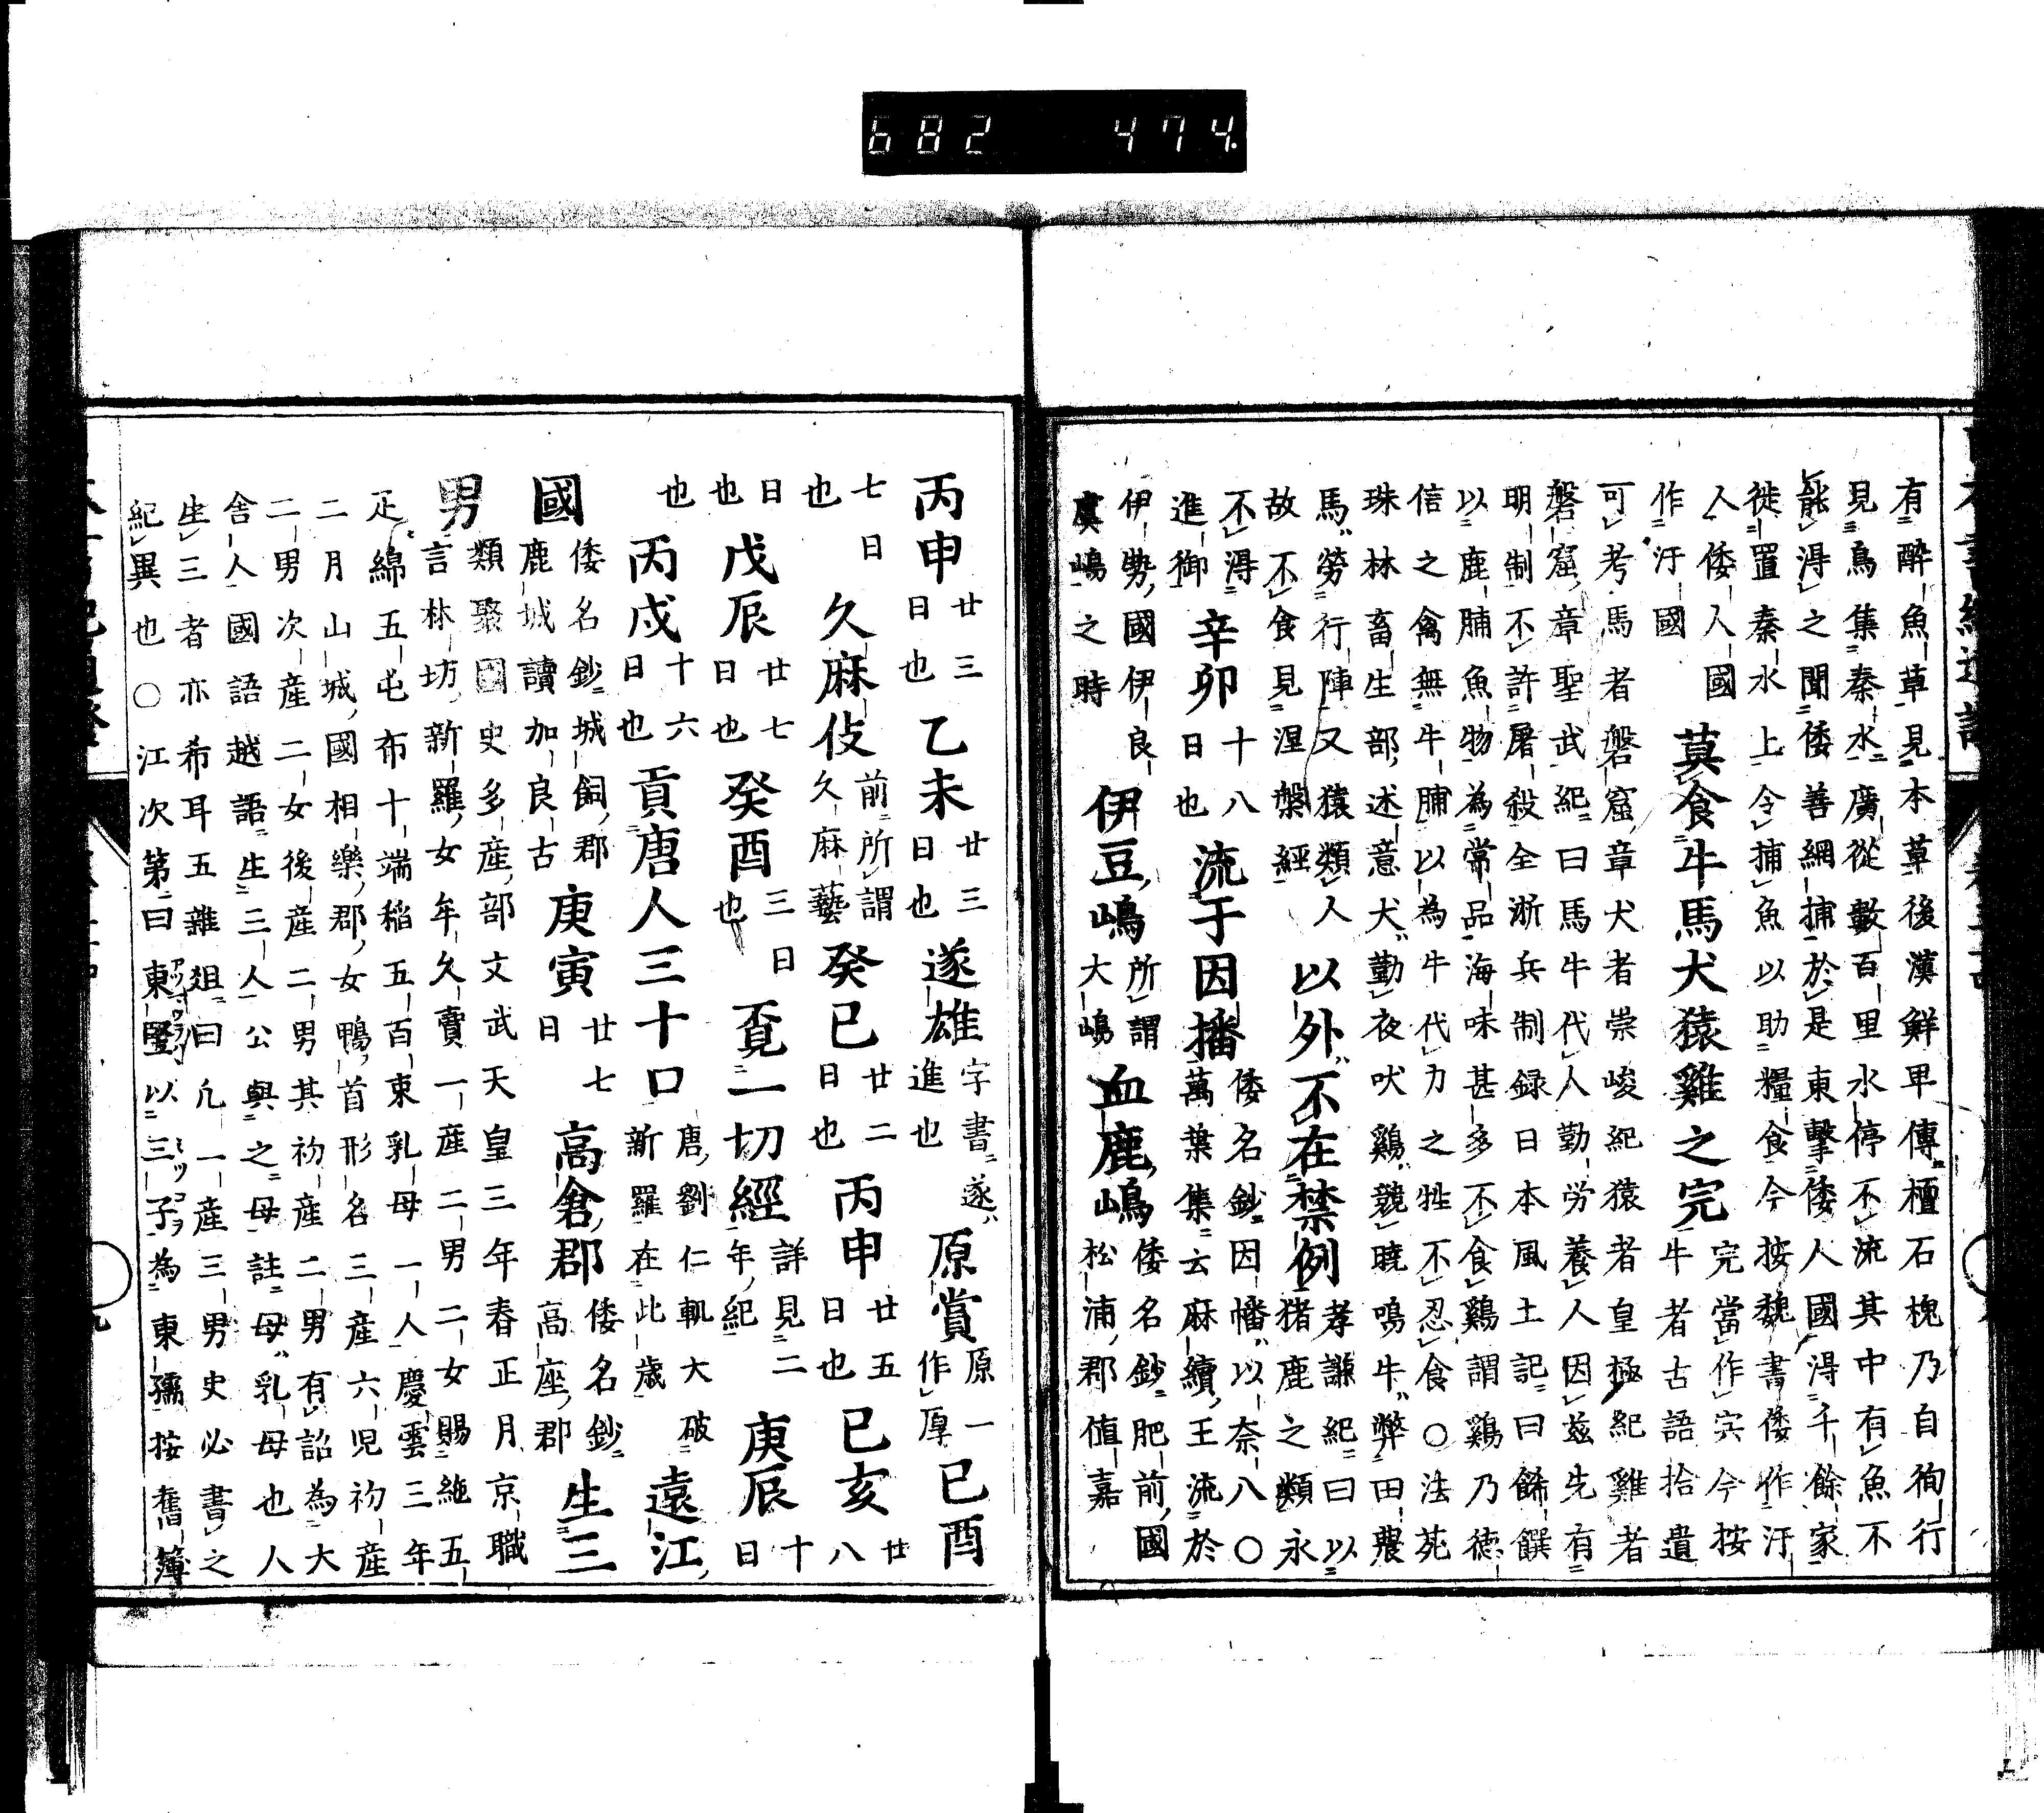 682 474.
有醉魚草見本草後漢鮮卑傳檀石槐乃自徇行
見烏集秦水廣從數百里水停不流其中有魚不
能淂之聞倭善網捕於是東擊倭人國淂千餘家
徙置秦水上令捕魚以助糧食今按魏書倭作汙
人倭人國
作汙國
莫食牛馬犬猿雞之完
完當作宍今按
牛者古語拾遺
可考馬者磐窟章犬者崇峻紀猿者皇極紀雞者
磐窟章聖武紀曰馬牛代人勤労養人因茲先有
明制不許屠殺全淅兵制録日本風土記曰餙饌
以鹿脯魚物為常品海味甚多不食鷄謂鷄乃徳
信之禽無牛脯以為牛代力之牲不忍食○法苑
珠林畜生部述意犬勤夜吠鷄競曉鳴牛弊田農
馬勞行陣又猿類人
故不食見涅槃經
以外不在禁例
孝謙紀曰以
猪鹿之類永
不淂
進御
辛卯
十八
日也
流于因播
倭名鈔因幡以奈八○
萬葉集云麻續王流於
伊勢國伊良
虞嶋之時
伊豆嶋
所謂
大嶋
血鹿嶋
倭名鈔肥前國
松浦郡値嘉
丙申
廿三
日也
乙未
廿三
日也
遂雄
字書遂
進也
原賞
原一
作厚
已酉
七日
也
久麻伎
前所謂
久麻藝
癸巳
廿二
日也
丙申
廿五
日也
已亥
廿八
日
也
戊辰
廿七
日也
癸酉
三日
也
覔一切經
詳見二
年紀
庚辰
十日
也
丙戌
十六
日也
貢唐人三十口
唐劉仁軌大破
新羅在此歳
遠江
國
倭名鈔城飼郡
鹿城讀加良古
庚寅
廿七
日
高倉郡
倭名鈔
高座郡
生三
男
類聚國史多産部文武天皇三年春正月京職
言林坊新羅女牟久賣一産二男二女賜絁五
疋綿五屯布十端稲五百束乳母一人慶雲三年
二月山城國相樂郡女鴨首形名三産六児初産
二男次産二女後産二男其初産二男有詔為大
舎人國語越語生三人公與之母註母乳母也人
生三者亦希耳五雜俎曰凢一産三男史必書之
紀異也○江次第曰東豎以三子為東孺按舊簿